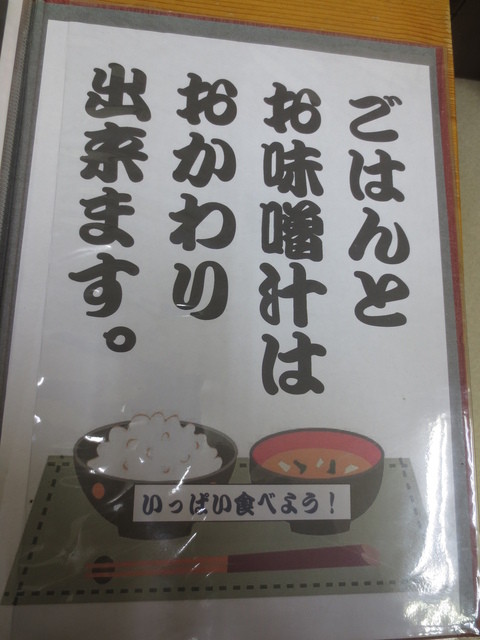 ごはんと
お味噌汁は
おかわり
出来ます。
いっぱい食べよう！